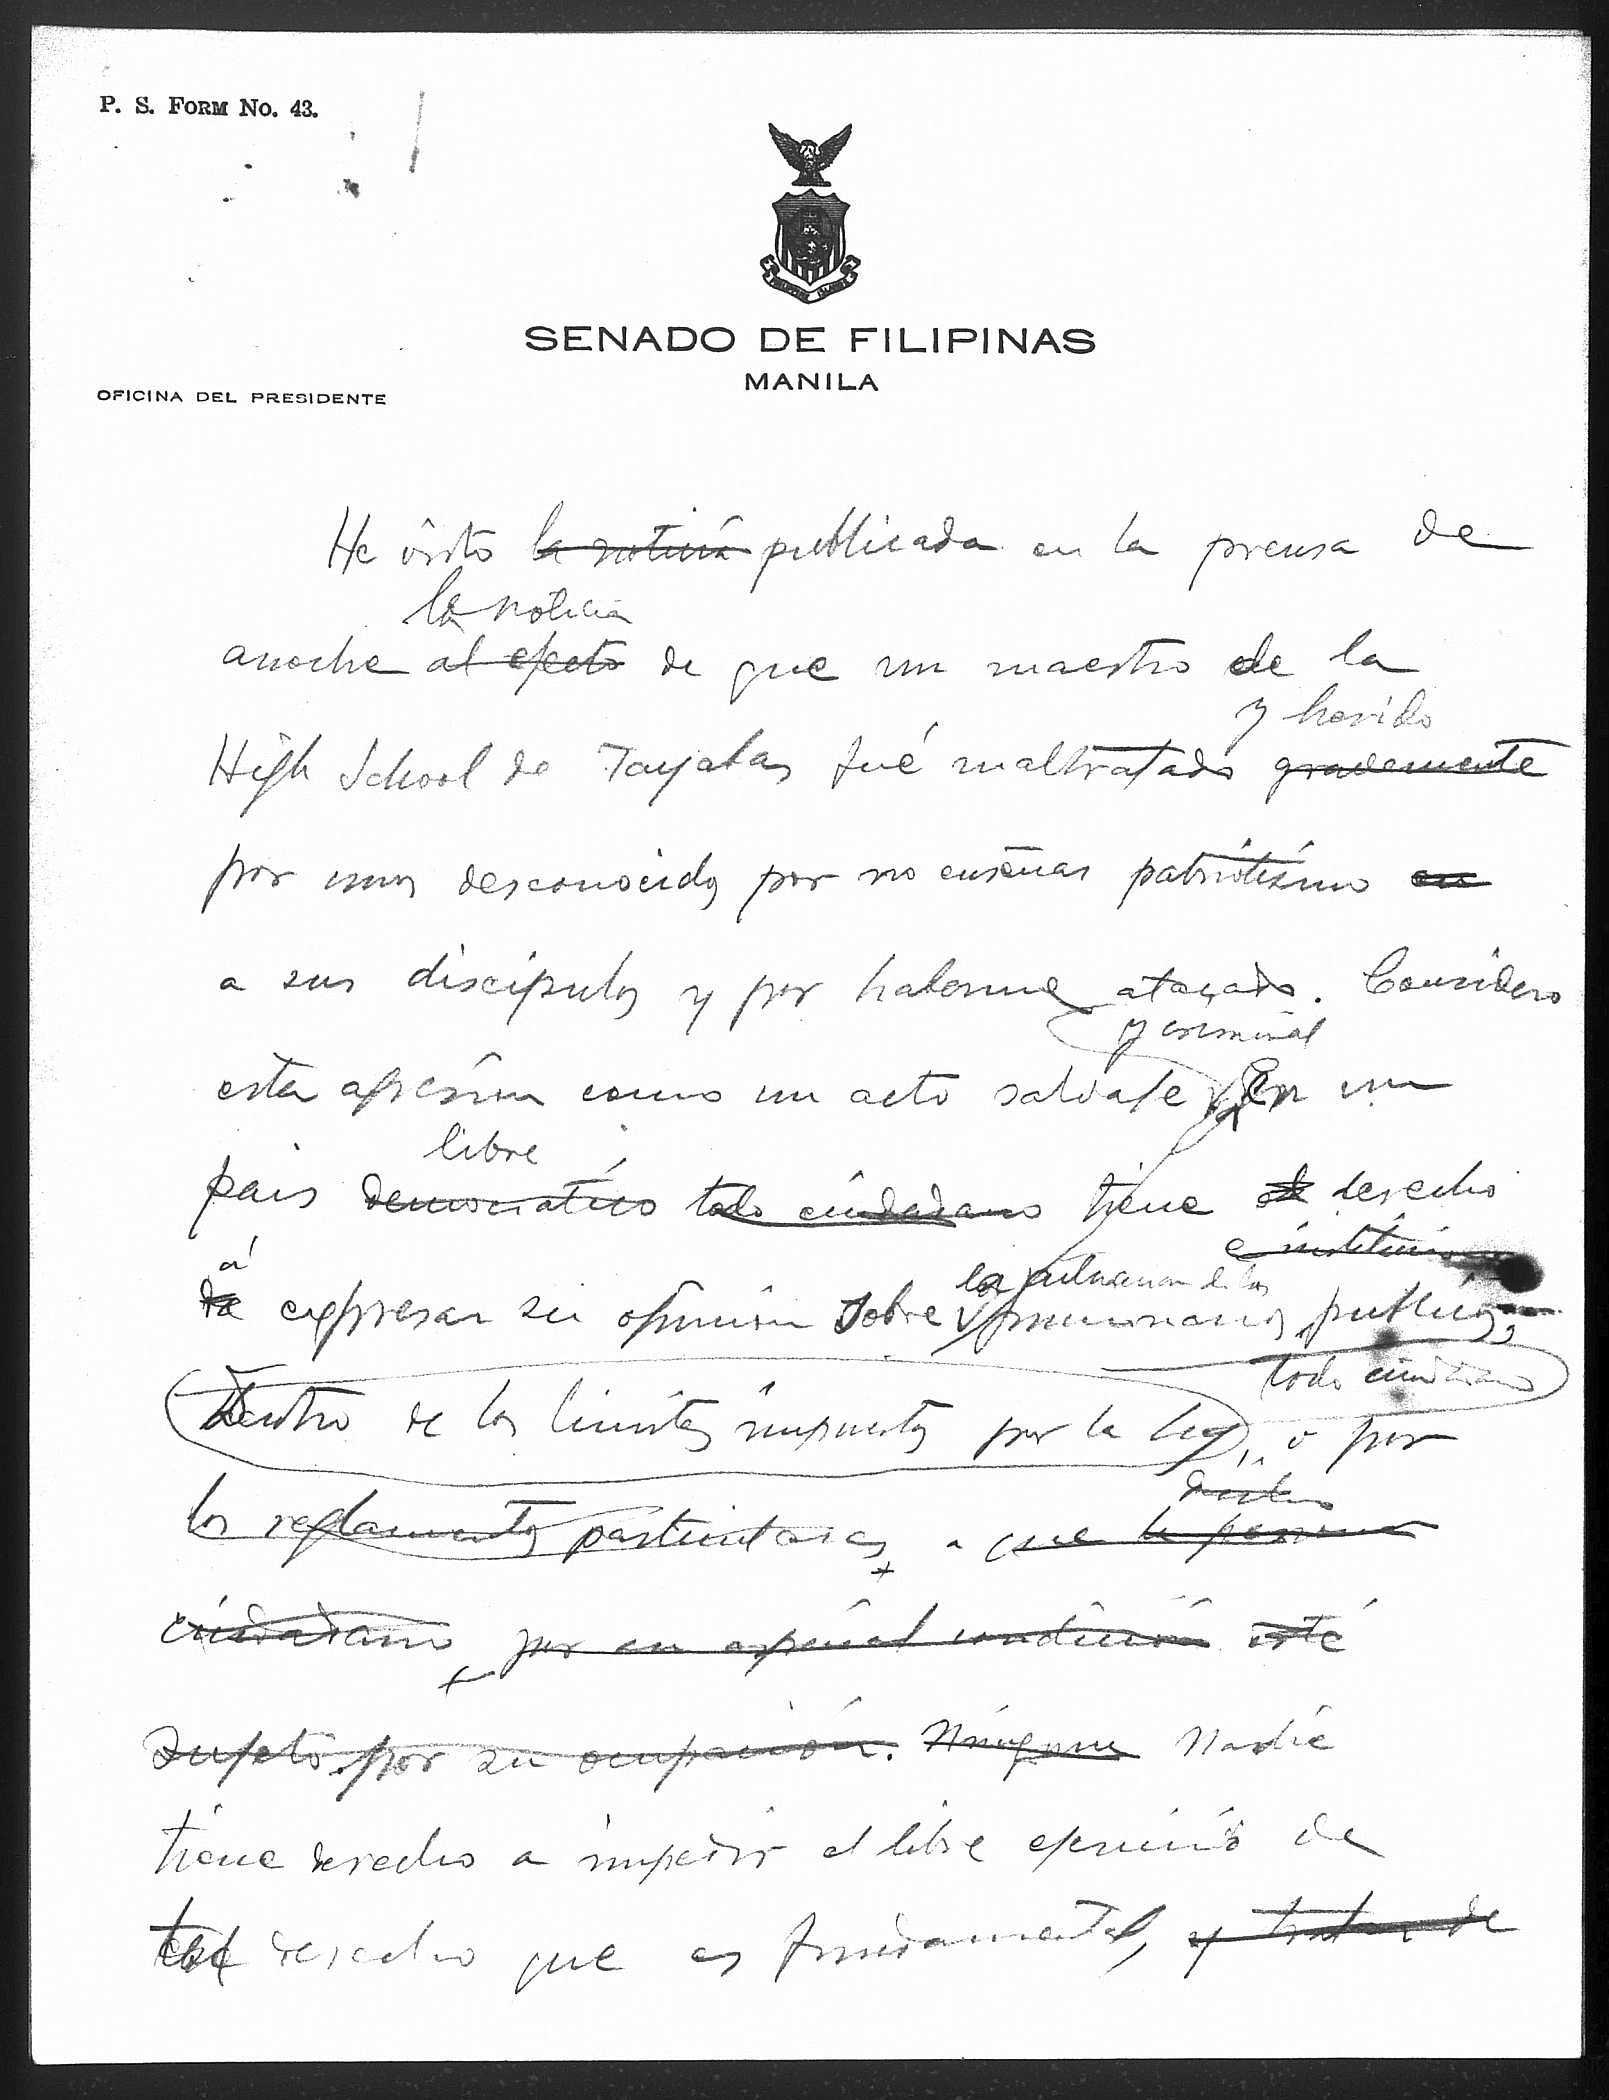 P. S. FORM NO. 43.
PHILIPPINE ISLANDS
SENADO DE FILIPINAS
MANILA
OFICINA DEL PRESIDENTE
He visto la noticia publicada en la prensa de
la noticia
anoche al efecto de que un maestro de la
y herido
High School de Tayabas fué maltratado gravemente
por unos desconocidos por no enseñar patriótismo en
a sus discipulos y por haberme atacado. Considero
y criminal
esta agresion como un acto salvaje En un
libre
pais democratico todo ciudadano tiene el derecho
e instituciones
á
de expresar su opinión sobre funcionarios publicos,
la actuacion de los
todo ciudadano
Dentro de los limites impuestos por la ley, o por
los reglamentos particulares a que la persona
ciudadano por su especial condición esté
sujeto por su ocupación. Ninguno Nadie
tiene derecho a impedir el libre ejercicio de
tal derecho que es fundamental, y tratar de